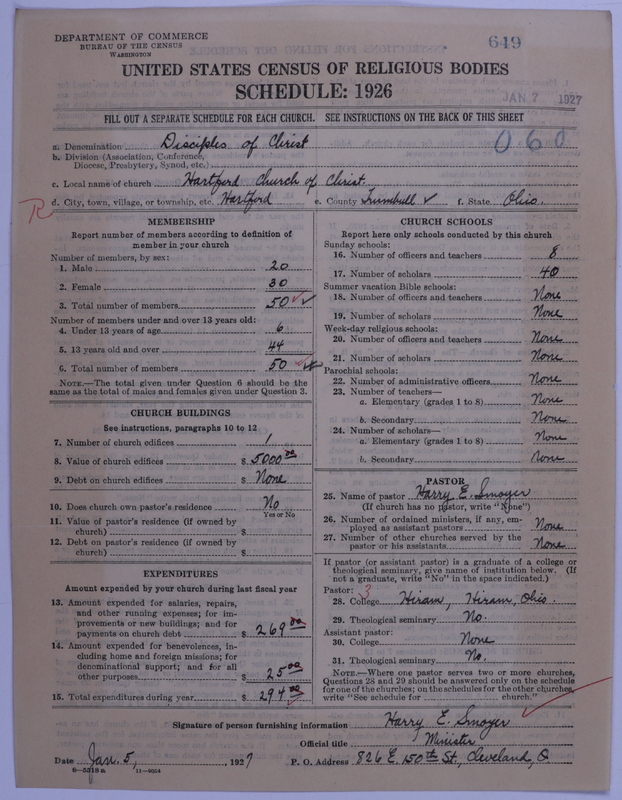 DEPARTMENT OF COMMERCE
BUREAU OF THE CENSUS
WASHINGTON
649
UNITED STATES CENSUS OF RELIGIOUS BODIES
SCHEDULE: 1926
JAN 7 1927
FILL OUT A SEPARATE SCHEDULE FOR EACH CHURCH. SEE INSTRUCTIONS ON THE BACK OF THIS SHEET
060
a. Denomination Disciples of Christ
b. Division (Association, Conference, Diocese, Presbytery, Synod, etc.)
c. Local name of church Hartford Church of Christ
R
d. City, town, village, or township, etc. Hartford e. County Trumbull ✓ f. State Ohio.
MEMBERSHIP
Report number of members according to definition of
member in your church
Number of members, by sex:
1. Male 20
2. Female 30
3. Total number of members 50 ✓✓
Number of members under and over 13 years old:
4. Under 13 years of age 6
5. 13 years old and over 44
6. Total number of members 50
NOTE.—The total given under Question 6 should be the
same as the total of males and females given under Question 3.
CHURCH BUILDINGS
See instructions, paragraphs 10 to 12
7. Number of church edifices 1
8. Value of church edifices $ 5000 00
9. Debt on church edifices $ None
10. Does church own pastor's residence No
Yes or No
11. Value of pastor's residence (if owned by
church) $
12. Debt on pastor's residence (if owned by
church) $
EXPENDITURES
Amount expended by your church during last fiscal year
13. Amount expended for salaries, repairs,
and other running expenses; for im-
provements or new buildings; and for
payments on church debt $ 269 00
14. Amount expended for benevolences, in-
cluding home and foreign missions; for
denominational support; and for all
other purposes $ 25 00
15. Total expenditures during year $ 294 00
CHURCH SCHOOLS
Report here only schools conducted by this church
Sunday schools:
16. Number of officers and teachers 8
17. Number of scholars 40
Summer vacation Bible schools:
18. Number of officers and teachers None
19. Number of scholars None
Week-day religious schools:
20. Number of officers and teachers None
21. Number of scholars None
Parochial schools:
22. Number of administrative officers None
23. Number of teachers—
a. Elementary (grades 1 to 8) None
b. Secondary None
24. Number of scholars—
a. Elementary (grades 1 to 8) None
b. Secondary None
PASTOR
25. Name of pastor Harry E. Smoyer
(If church has no pastor, write "None")
26. Number of ordained ministers, if any, em-
ployed as assistant pastors None
27. Number of other churches served by the
pastor or his assistants None
If pastor (or assistant pastor) is a graduate of a college or
theological seminary, give name of institution below. (If
not a graduate, write "No" in the space indicated.)
Pastor: 3
28. College Hiram, Hiram, Ohio.
29. Theological seminary No.
Assistant pastor:
30. College None
31. Theological seminary No.
NOTE.—Where one pastor serves two or more churches,
Questions 28 and 29 should be answered only on the schedule
for one of the churches; on the schedules for the other churches,
write "See schedule for church."
Signature of person furnishing information Harry E. Smoyer
Official title Minister
Date Jan. 5, 1927 P. O. Address 826 E. 150th St., Cleveland, O.
8—5518a 11—8054